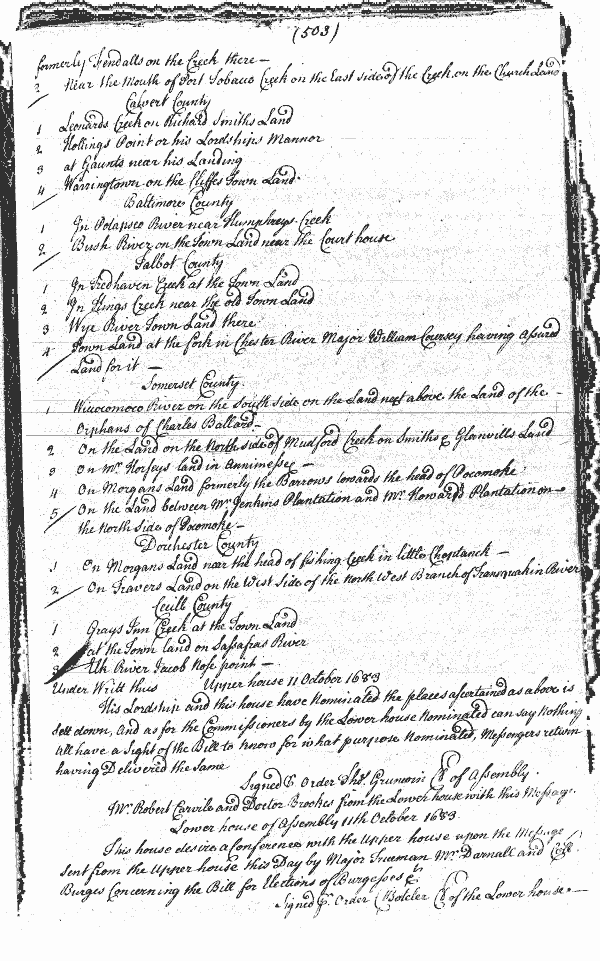 (503)
formerly Fendalls on the Creek there —
2 Near the Mouth of Port Tobaco Creek on the East side of the Creek on the Church Land
Calvert County
1 Leonards Creek on Richard Smiths Land
2 Hollings Point or his Lordships Mannor
3 at Gaunts near his Landing
4 Warringtown on the Cliffes Town Land.
Baltimore County
1 In Potapsco River near Humphreys Creek
2 Bush River on the Town Land near the Court house
Talbot County
1 In Tredhaven Creek at the Town Land
2 In Kings Creek near the old Town Land
3 Wye River Town Land there
4 Town Land at the fork in Chester River Major William Coursey having assured
Land for it —
Somerset County.
1 Wiccocomoco River on the South side on the Land next above the Land of the
Orphans of Charles Ballard —
2 On the Land on the North side of Mudford Creek on Smiths & Glanvills Land
3 On Mr. Horseys land in Annimessex —
4 On Morgans Land formerly the Barrows towards the head of Pocomoke
5 On the Land between Mr. Jenkins Plantation and Mr. Howard Plantation on
the North side of Pocomoke —
Dorchester County
1 On Morgans Land near the head of fishing Creek in little Choptanck —
2 On Travers Land on the West side of the North West Branch of Transquakin River
Cecill County
1 Grays Inn Creek at the Town Land
2 at the Town land on Sassafras River
3 Elk River Jacob Nose point —
Under Writt thus Upper house 11 October 1683
His Lordship and this house have Nominated the places ascertained as above is
Sett down, And as for the Commissioners by the Lower house Nominated can say Nothing
till have a Sight of the Bill to know for what purpose Nominated, Messengers return
having Delivered the Same
Signed P. Order Cl. of Assembly.
Mr. Robert Carvile and Doctor Brookes from the Lower house with this Message.
Lower house of Assembly 11th October 1683.
This house desire a Conference with the Upper house upon the Message
sent from the Upper house this Day by Major Trueman Mr. Darnall and Coll.
Burges Concerning the Bill for Elections of Burgesses &c.
Signed P. Order Cl. of the Lower house. —